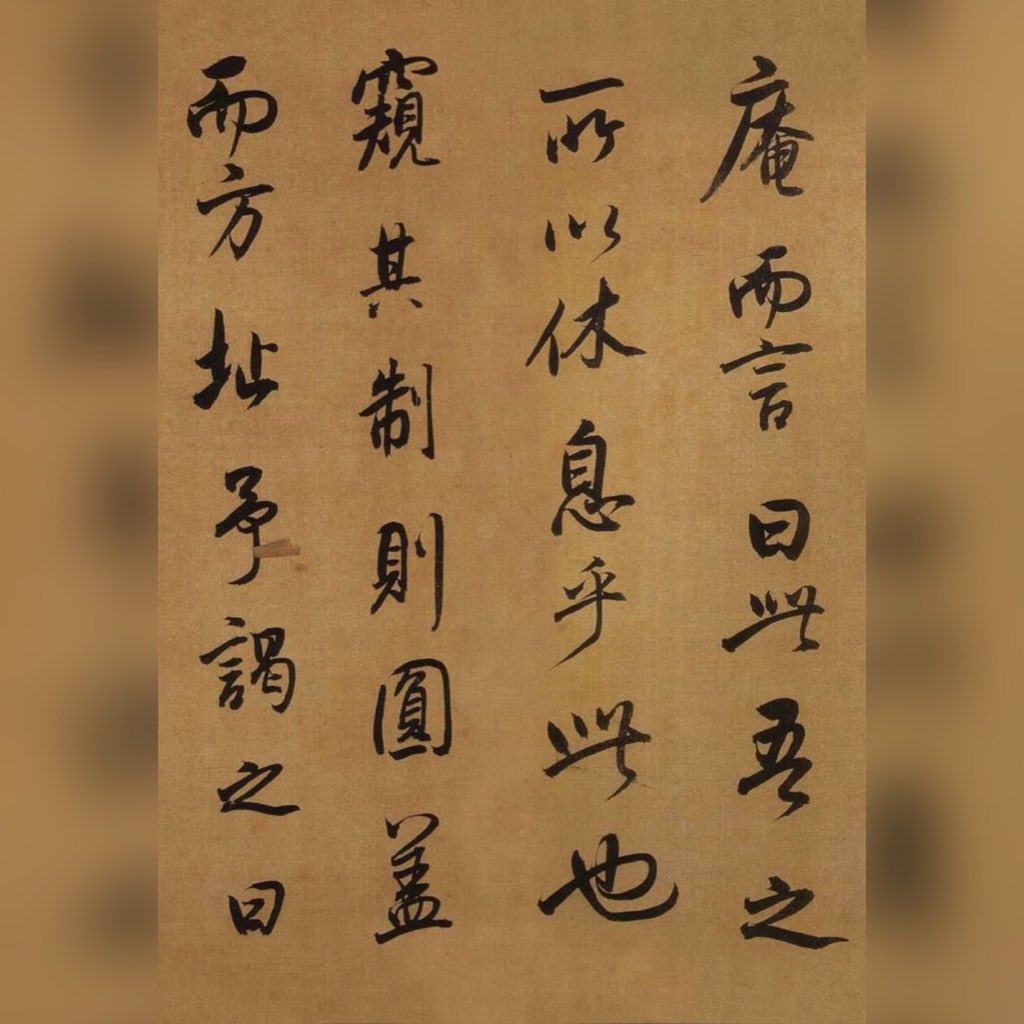 庵而言曰此吾之
所以休息乎此也
窺其制則圓蓋
而方址予謁之曰